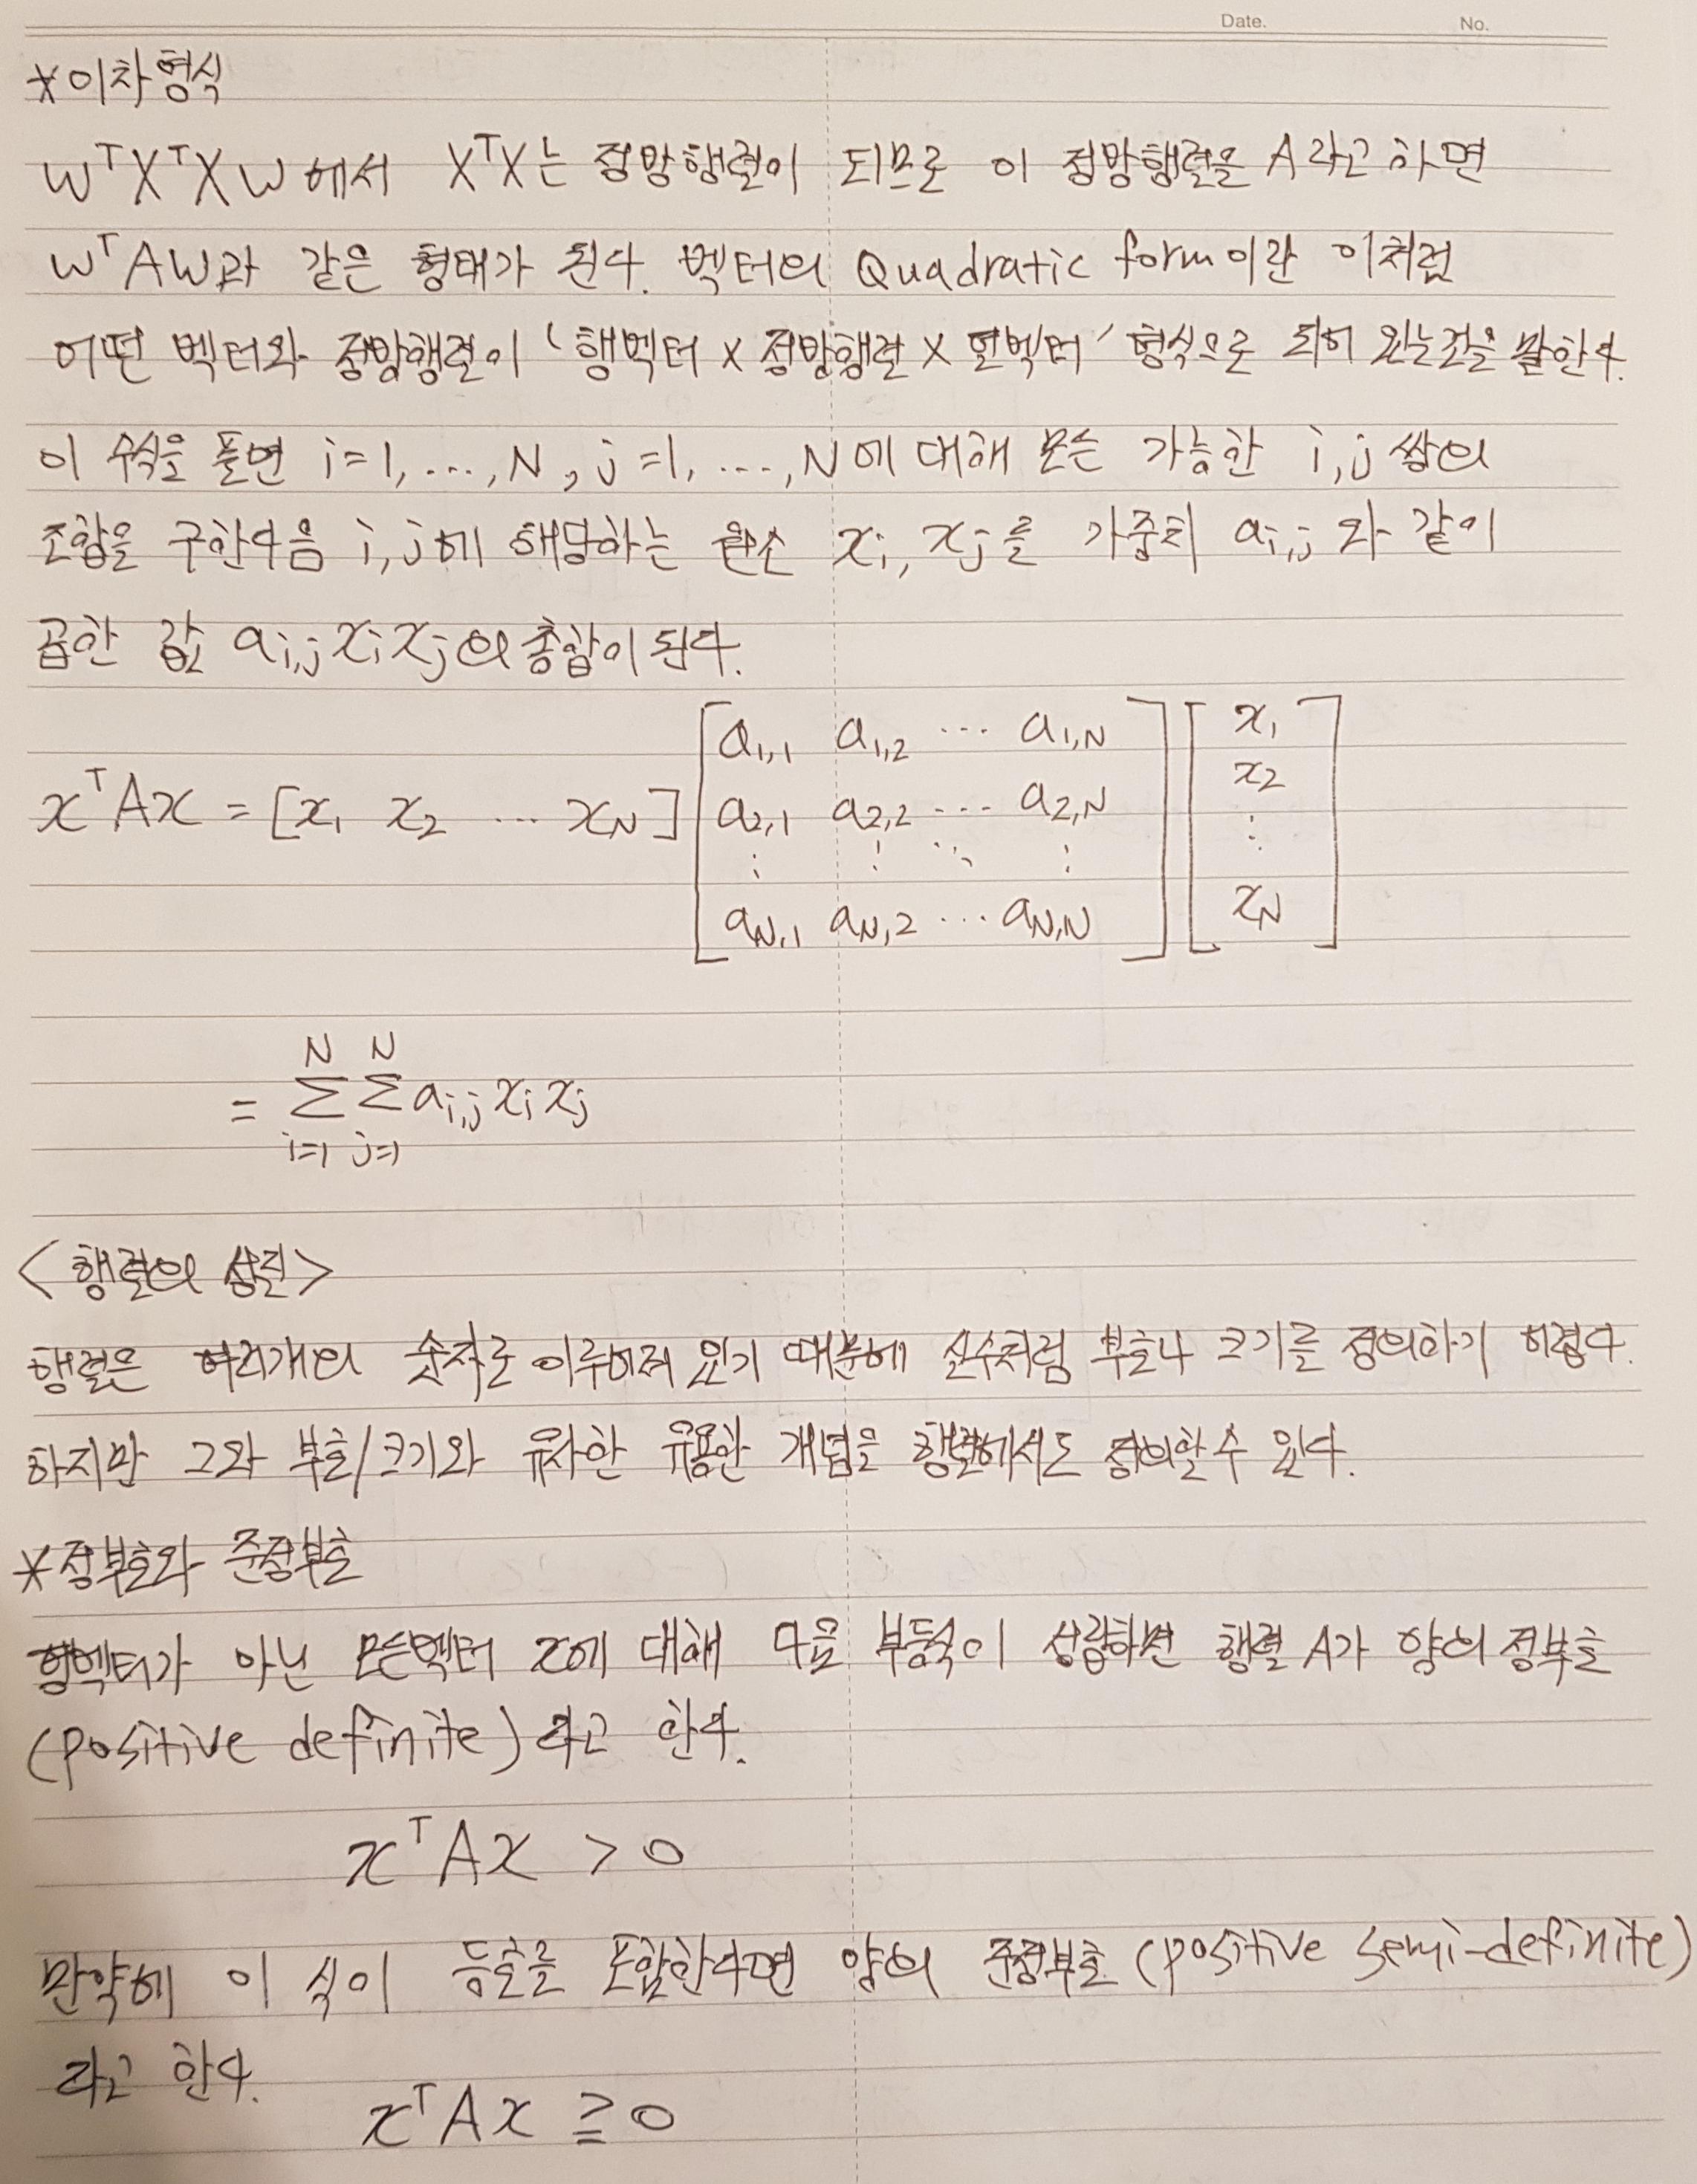 Date. No.
*이차형식
wᵀXᵀXw에서 XᵀX는 정방행렬이 되므로 이 정방행렬을 A라고 하면
wᵀAw과 같은 형태가 된다. 벡터의 Quadratic form이란 이처럼
어떤 벡터와 정방행렬이 '행벡터 x 정방행렬 x 열벡터' 형식으로 되어 있는것을 말한다.
이 수식을 풀면 i=1, ..., N, j=1, ..., N에 대해 모든 가능한 i, j 쌍의
조합을 구한다음 i, j에 해당하는 원소 xᵢ, xⱼ를 가중치 aᵢ,ⱼ와 같이
곱한 값 aᵢ,ⱼxᵢxⱼ의 총합이 된다.
xᵀAx = [x₁ x₂ ... x_N] [a₁,₁ a₁,₂ ... a₁,N a₂,₁ a₂,₂ ... a₂,N ⋮ ⋮ ⋱ ⋮ a_N,₁ a_N,₂ ... a_N,N] [x₁ x₂ ⋮ x_N]
= Σ_{i=1}^{N} Σ_{j=1}^{N} aᵢ,ⱼ xᵢ xⱼ
<행렬의 성질>
행렬은 여러개의 숫자로 이루어져 있기 때문에 실수처럼 부호나 크기를 정의하기 어렵다.
하지만 그와 부호/크기와 유사한 유용한 개념을 행렬에서도 정의할 수 있다.
*정부호와 준정부호
영벡터가 아닌 모든벡터 x에 대해 다음 부등식이 성립하면 행렬 A가 양의 정부호
(positive definite)라고 한다.
xᵀAx > 0
만약에 이 식이 등호를 포함한다면 양의 준정부호(positive semi-definite)
라고 한다.
xᵀAx ≧ 0